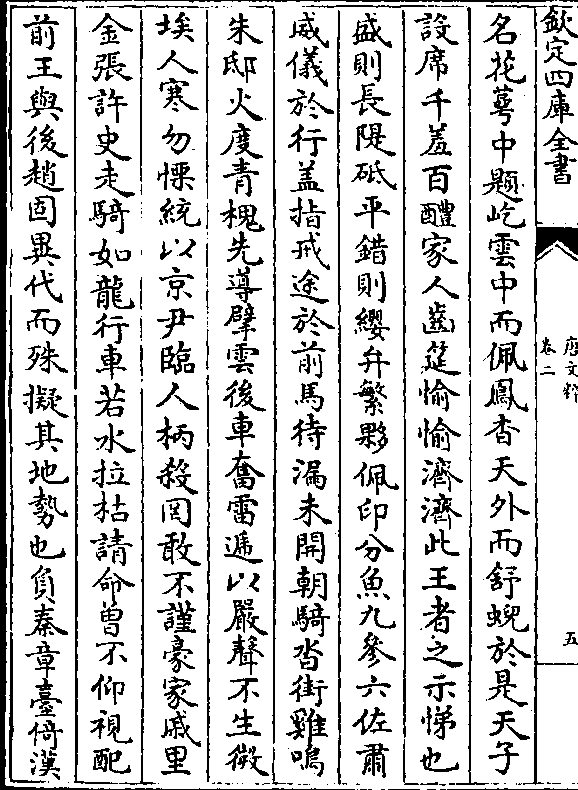 欽定四庫全書
唐文粹
卷二
五
名花萼中題屹雲中而佩鳳杳天外而舒蜺於是天子
設席千羞百醴家人齒筵愉愉濟濟此王者之示悌也
盛則長隄砥平錯則纓弁繁夥佩印分魚九參六佐肅
威儀於行盖指戒途於前馬待漏未開朝騎沓街雞鳴
朱邸火度青槐先導擘雲後車奮雷遞以嚴聲不生微
埃人寒勿慄統以京尹臨人柄殺罔敢不謹豪家戚里
金張許史走騎如龍行車若水拉枯請命曽不仰視配
前王與後趙固異代而殊擬其地勢也負秦章臺倚漢